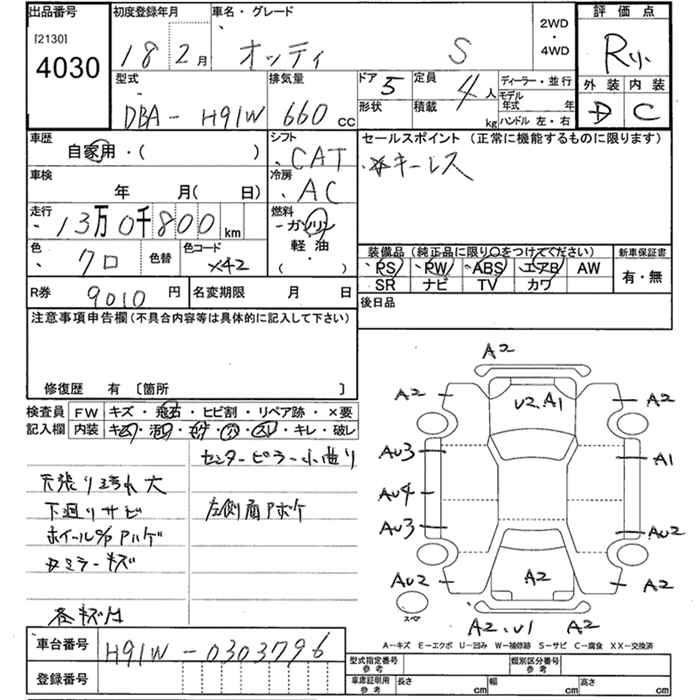 出品番号
[2130]
4030
初度登録年月
18 2月
車名・グレード
オッティ S
2WD
・
4WD
評価点
R
外装 内装
D C
型式
DBA-H91W
排気量
660 cc
ドア 5
形状
定員 4人
積載 kg
ディーラー・並行
モデル
年式 年
ハンドル 左・右
車歴
自家用・( )
シフト
CAT
セールスポイント (正常に機能するものに限ります)
キーレス
車検
年 月( 日)
冷房
AC
走行
13万0千800 km
燃料
ガソリン
軽油
( ・ )
色
クロ
色替
色コード
X42
装備品 (純正品に限り○をつけてください)
PS PW ABS エアB AW
SR ナビ TV カワ
新車保証書
有・無
R券
9010 円
名変期限 月 日
後日品
注意事項申告欄(不具合内容等は具体的に記入して下さい)
修復歴 有 〔箇所 〕
検査員
記入欄
FW キズ・飛石・ヒビ割・リペア跡・×要
内装 キズ・汚れ・コゲ・穴・スレ・キレ・破レ
センターピラー小曲り
天張り汚れ大
下廻りサビ
左側肩アボケ
ミラーキズ
各キズ凹
A2
A2
U2.A1
A2
AU3
A1
AU4
AU3
AU2
AU2
A2
A2
スペア
A2.U1
A2
A-キズ E-エクボ U-凹み W-補修跡 S-サビ C-腐食 XX-交換済
車台番号
H91W-0303796
登録番号
型式指定番号
参考
類別区分番号
参考
車庫証明用
参考
長さ cm
幅 cm
高さ cm